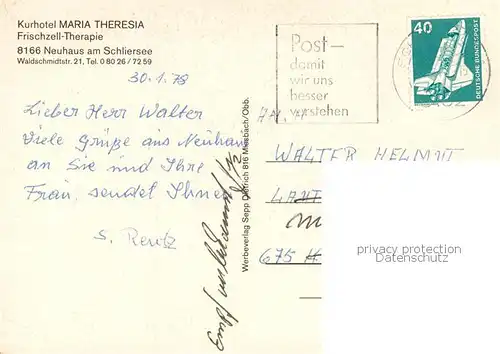 Kurhotel MARIA THERESIA
Frischzell-Therapie
8166 Neuhaus am Schliersee
Waldschmidtstr. 21, Tel. 0 80 26 / 72 59
30.1.78
Lieber Herr Walter
Viele Grüße aus Neuhaus
an Sie und Ihre
Frau, sendet Ihnen
S. Rentz
Werbeverlag Sepp Dietrich 816 Miesbach/Obb.
Post –
damit
wir uns
besser
verstehen
40
DEUTSCHE BUNDESPOST
WALTER HELMUT
675
privacy protection
oldthing.com